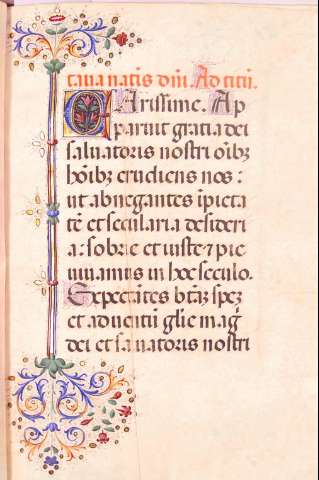 caua natis dñi. Ad titũ.
CArissime. Ap
paruit gratia dei
saluatoris nostri oĩbꝫ
hoĩbꝫ erudiens nos:
ut abnegantes ĩpieta
tẽ et secularia desideri
a: sobrie et iuste ⁊ pie
uiuamus in hoc seculo.
Expectãtes btãꝫ speꝫ
et aduentũ glie mag
dei et saluatoris nostri